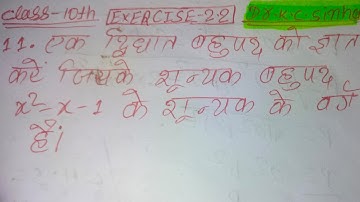 class-10th EXERCISE-2.2 K.C. Sinha
11. एक द्विघात बहुपद को ज्ञात
करें जिसके शून्यक बहुपद
x²-x-1 के शून्यक के वर्ग
हैं।